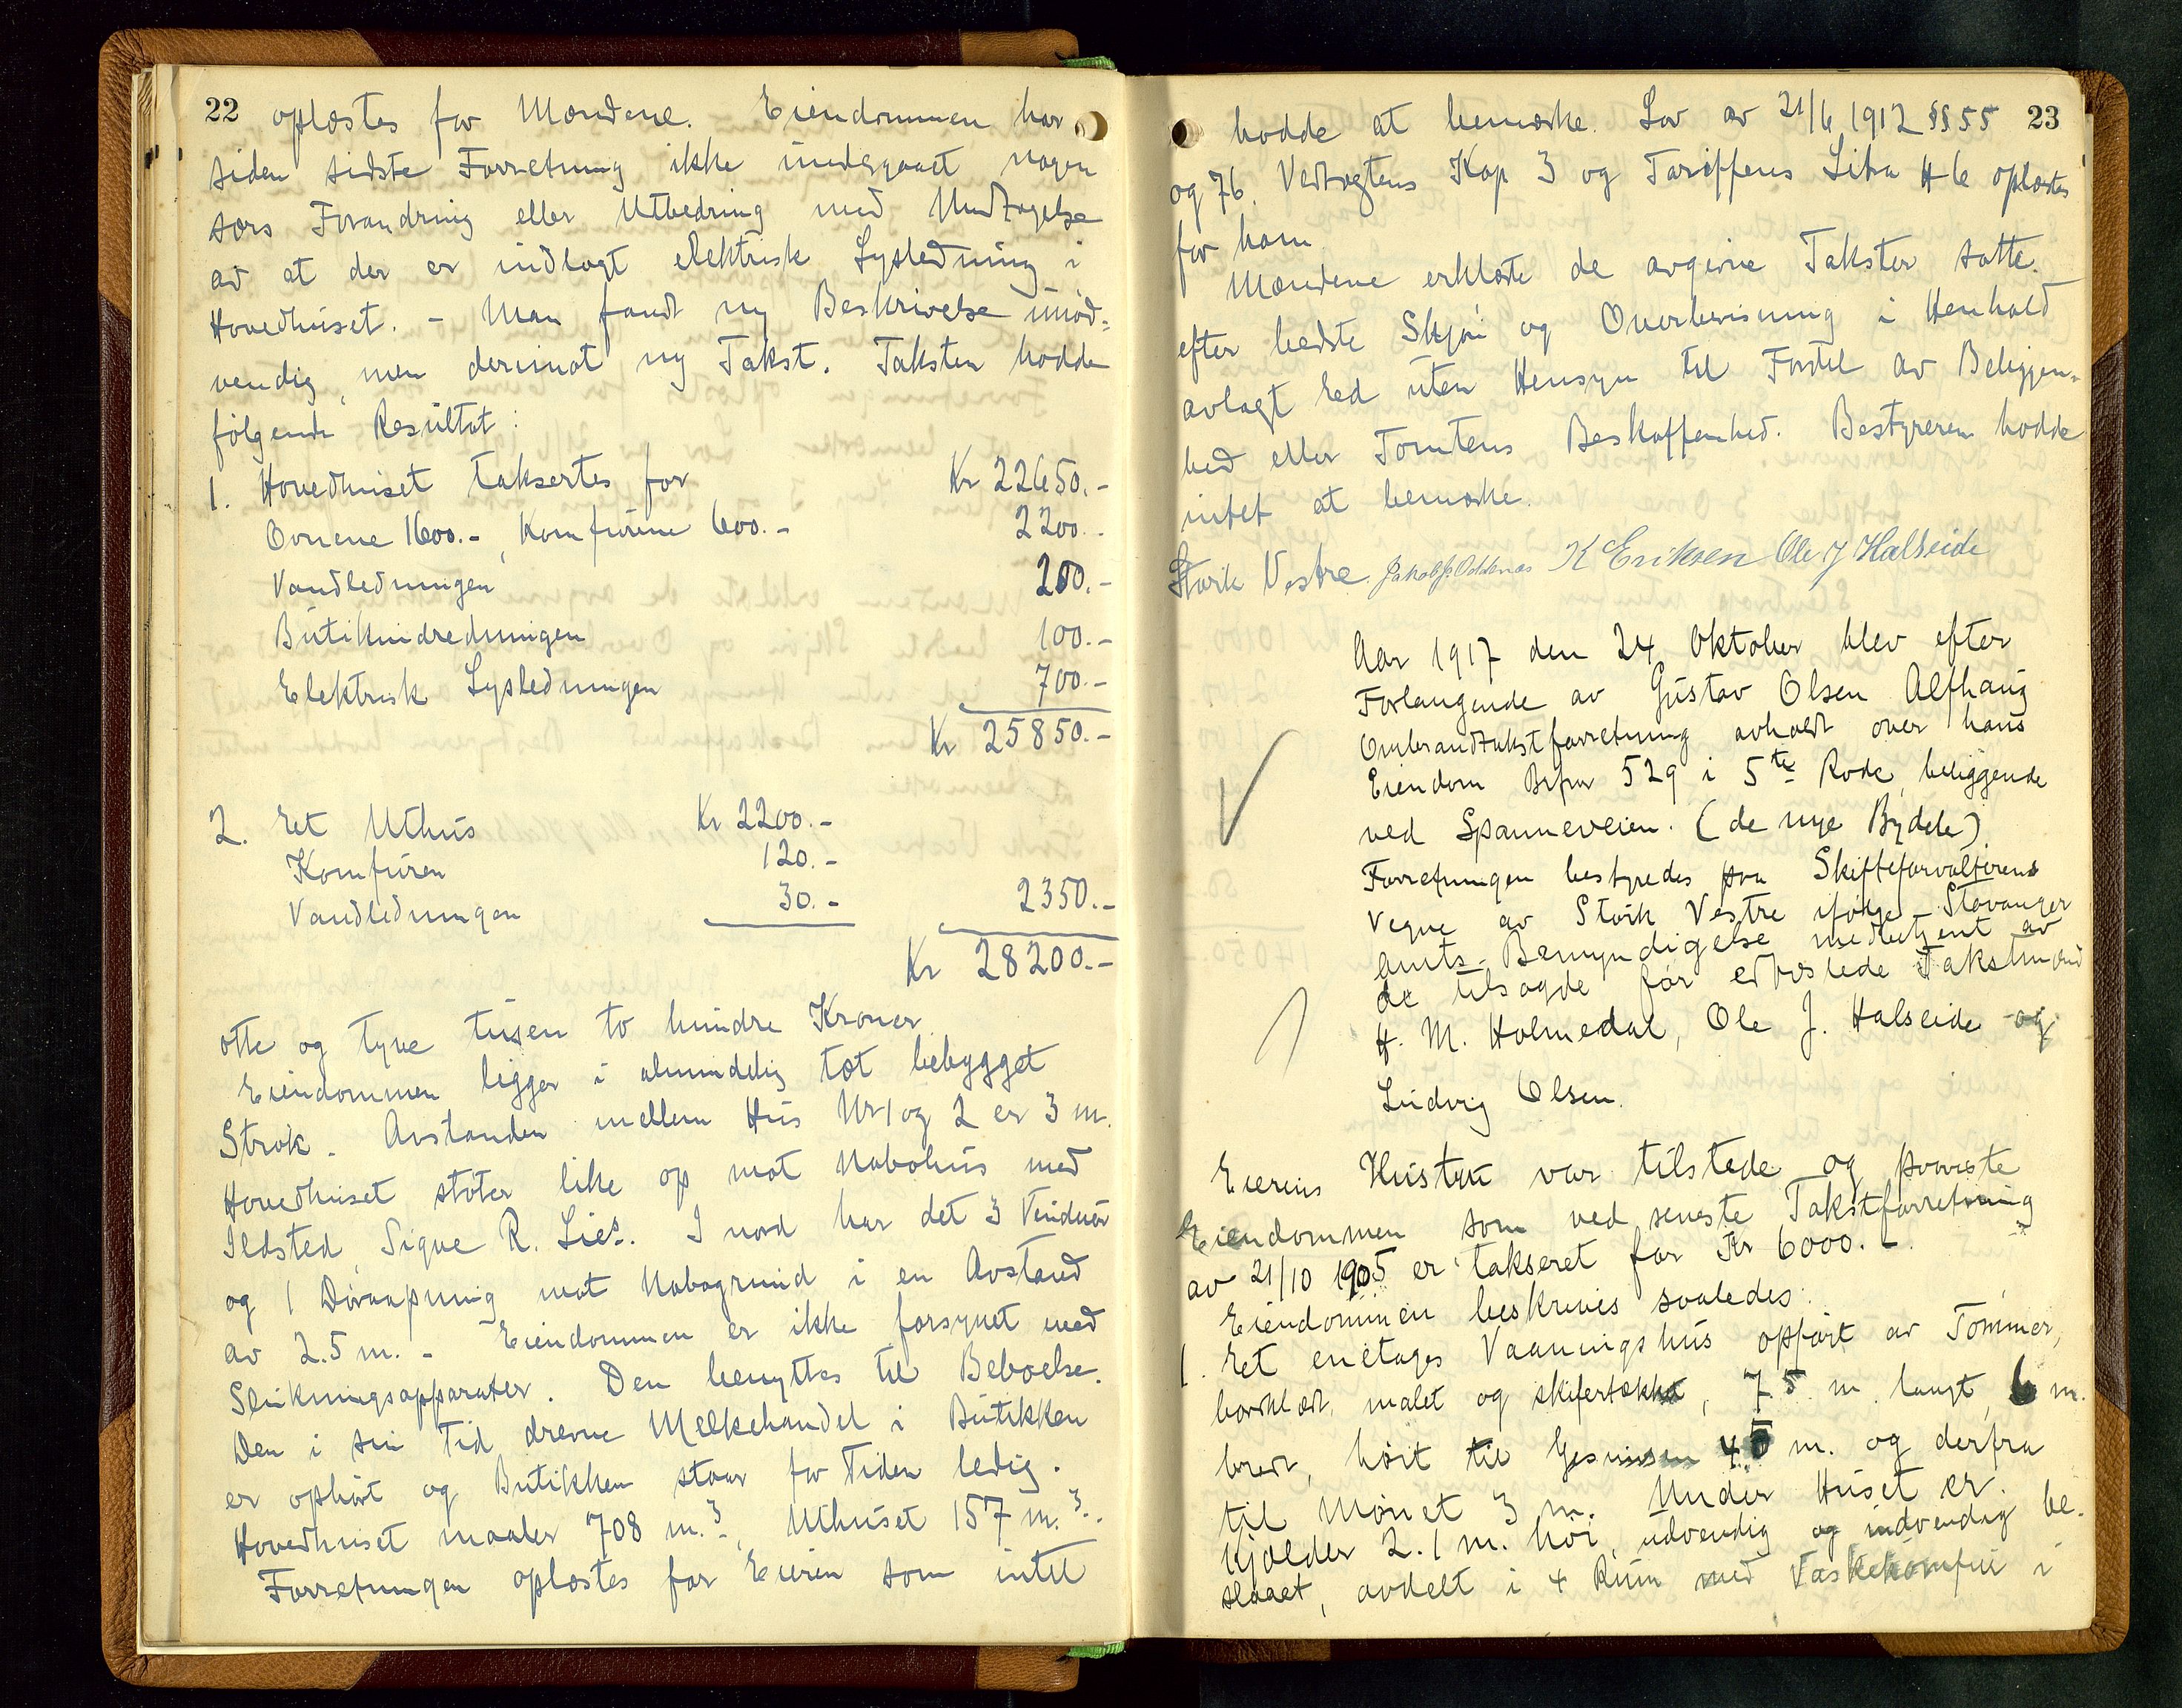 22 oplæstes for Mændene. Eiendommen har
siden sidste Forretning ikke undergaaet nogen
særs Forandring eller Utbedring med Undtagelse
av at der er indlagt elektrisk Lysledning i
Hovedhuset. - Man fandt ny Beskrivelse unød-
vendig, men derimot ny Takst. Taksten hadde
følgende Resultat:
1. Hovedhuset taksertes for Kr 22650.-
Ovnene 1600.-, Komfurene 600.- 2200.-
Vandledningen 200.-
Butikindredningen 100.-
Elektrisk Lysledningen 700.-
Kr 25850.-
2. Et Uthus Kr 2200.-
Komfuren 120.-
Vandledningen 30.- 2350.-
Kr 28200.-
otte og tyve tusen to hundre Kroner.
Eiendommen ligger i almindelig tæt bebygget
Strøk. Avstanden mellem Hus Nr 1 og 2 er 3 m.
Hovedhuset støter like op mot Nabohus med
Ildsted, Signe R. Lies. I nord har det 3 Vinduer
og 1 Døraapning mot Nabogrund i en Avstand
av 2.5 m. - Eiendommen er ikke forsynet med
Slukningsapparater. Den benyttes til Beboelse.
Den i sin Tid drevne Melkehandel i Butikken
er ophørt og Butikken staar for Tiden ledig.
Hovedhuset maaler 708 m.³, Uthuset 157 m.³.
Forretningen oplæstes for Eieren som intet
hadde at bemærke. Lov av 21/6 1912 §§ 55 23
og 76. Vedtægtens Kap 3 og Tariffens Litra H 6 oplæstes
for ham.
Mændene erklærte de avgivne Takster satte
efter bedste Skjøn og Overbevisning i Henhold
avlagt Ed uten Hensyn til Fordel av Beliggen-
hed eller Tomtens Beskaffenhed. Bestyreren hadde
intet at bemærke.
Størk Vestre. Jakob J. Oddenæs K Eriksen Ole J Halseide
Aar 1917 den 24 Oktober blev efter
Forlangende av Gustav Olsen Alfhaug
Ombrandtakstforretning avholdt over hans
Eiendom Brfnr 529 i 5te Rode, beliggende
ved Spanneveien. (de nye Bydele)
Forretningen bestyredes paa Skifteforvalterens
Vegne av Størk Vestre ifølge Stavanger
amts Bemyndigelse medbetjent av
de tilsagde før edfæstede Takstmænd
H. M. Holmedal, Ole J. Halseide og
Ludvig Olsen.
Eierens Hustru var tilstede og paaviste
Eiendommen som ved seneste Takstforretning
av 21/10 1905 er takseret for Kr 6000.-.
Eiendommen beskrives saaledes:
1. Et enetages Vaaningshus opført av Tømmer,
bordklædt, malet og skifertækket, 7.5 m langt, 6 m.
bredt, høit til Gesimsen 4.5 m. og derfra
til Mønet 3 m. Under Huset er
Kjælder 2.1 m. høi, udvendig og indvendig be-
slaaet, avdelt i 4 Rum med Vaskekomfur i